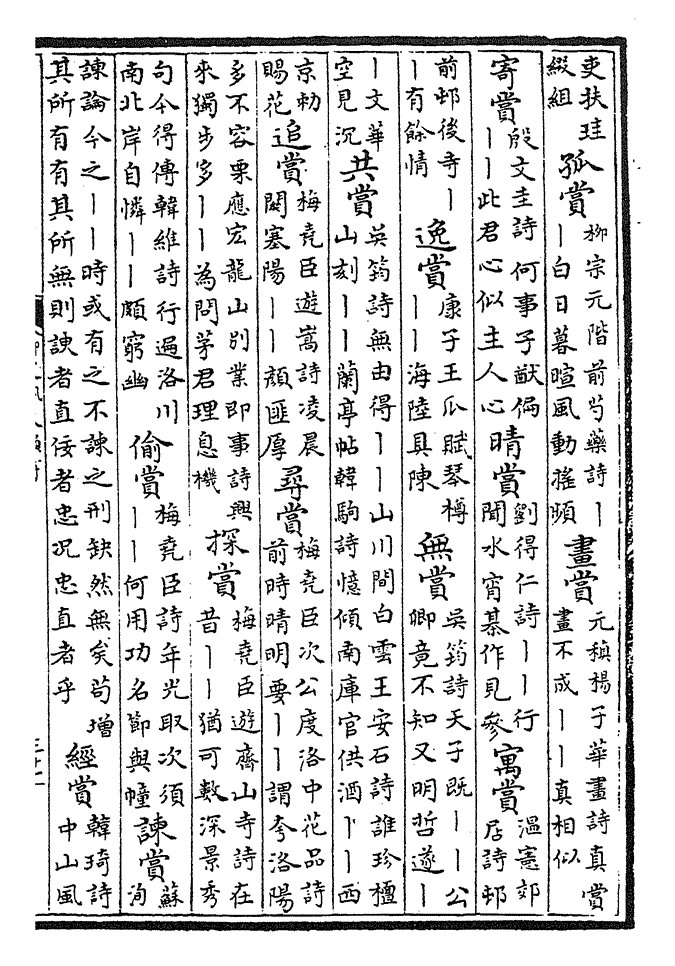 吏扶珪綴組 孤賞 柳宗元階前芍藥詩丨丨白日暮暄風動搖頻 畫賞 元稹楊子華畫詩真賞畫不成丨丨真相似
寄賞 殷文圭詩何事子猷偏丨丨此君心似主人心 晴賞 劉得仁詩丨丨行聞水宵棊作見參 寓賞 溫憲郊居詩邨
前邨後寺丨丨有餘情 逸賞 康子王瓜賦琴樽丨丨海陸具陳 無賞 吳筠詩天子既丨丨公卿竟不知又明哲遂丨
丨文華空見沉 共賞 吳筠詩無由得丨丨山川間白雲王安石詩誰珍檀山刻丨丨蘭亭帖韓駒詩憶傾南庫官供酒丨丨西
京勅賜花 追賞 梅堯臣遊嵩詩凌晨闕塞陽丨丨顏匪厚 尋賞 梅堯臣次公度洛中花品詩前時晴明要丨丨謂夸洛陽
多不容栗應宏龍山別業即事詩興來獨步多丨丨為問茅君理息機 探賞 梅堯臣遊齊山寺詩在昔丨丨猶可數深景秀
句今得傳韓維詩行遍洛川南北岸自憐丨丨頗窮幽 偷賞 梅堯臣詩年光取次須丨丨何用功名節與幢 諫賞 蘇洵
諫論今之丨丨時或有之不諫之刑缺然無矣苟增其所有有其所無則諛者直佞者忠況忠直者乎 經賞 韓琦詩中山風